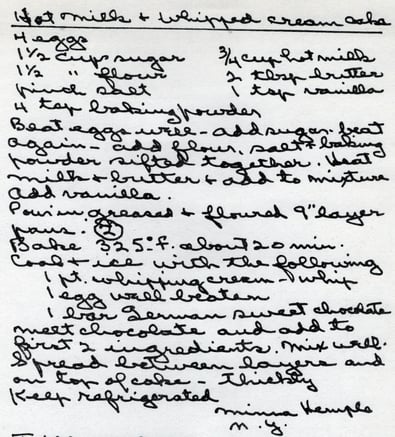 Hot milk & whipped cream cake
4 eggs
1 1/2 cups sugar 3/4 cup hot milk
1 1/2 " flour 2 tbsp butter
pinch salt 1 tsp vanilla
4 tsp baking powder
Beat eggs well - add sugar. beat
again - add flour, salt & baking
powder sifted together. Heat
milk & butter & add to mixture
add vanilla.
Pour in greased & floured 9" layer
pans. (2)
Bake 325° f. about 20 min.
Cool & ice with the following
1 pt. whipping cream - whip
1 egg well beaten
1 bar German sweet chocolate
melt chocolate and add to
first 2 ingredients. mix well.
Spread between layers and
on top of cake - thickly
Keep refrigerated
Minna
N.Y.